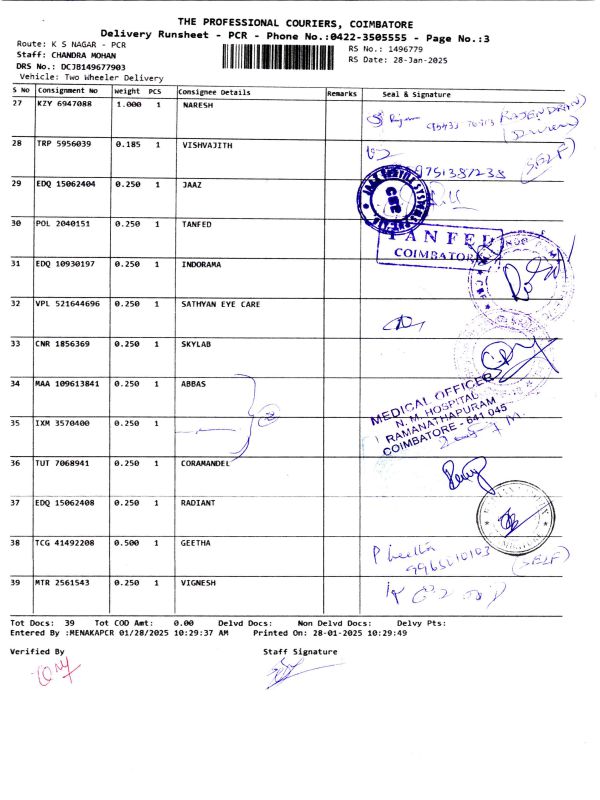 THE PROFESSIONAL COURIERS, COIMBATORE
Delivery Runsheet - PCR - Phone No.:0422-3505555 - Page No.:3
Route: K S NAGAR - PCR
RS No.: 1496779
Staff: CHANDRA MOHAN
RS Date: 28-Jan-2025
DRS No.: DCJB149677903
Vehicle: Two Wheeler Delivery
S No Consignment No Weight PCS Consignee Details Remarks Seal & Signature
27 KZY 6947088 1.000 1 NARESH
RAJENDRAN
28 TRP 5956039 0.185 1 VISHVAJITH
(SELF)
29 EDQ 15062404 0.250 1 JAAZ
30 POL 2040151 0.250 1 TANFED
TANFED
COIMBATORE
31 EDQ 10930197 0.250 1 INDORAMA
32 VPL 521644696 0.250 1 SATHYAN EYE CARE
33 CNR 1856369 0.250 1 SKYLAB
34 MAA 109613841 0.250 1 ABBAS
MEDICAL OFFICER
N. M. HOSPITAL
RAMANATHAPURAM
COIMBATORE - 641 045
35 IXM 3570400 0.250 1
36 TUT 7068941 0.250 1 CORAMANDEL
37 EDQ 15062408 0.250 1 RADIANT
38 TCG 41492208 0.500 1 GEETHA
(SELF)
39 MTR 2561543 0.250 1 VIGNESH
Tot Docs: 39 Tot COD Amt: 0.00 Delvd Docs: Non Delvd Docs: Delvy Pts:
Entered By :MENAKAPCR 01/28/2025 10:29:37 AM Printed On: 28-01-2025 10:29:49
Verified By Staff Signature